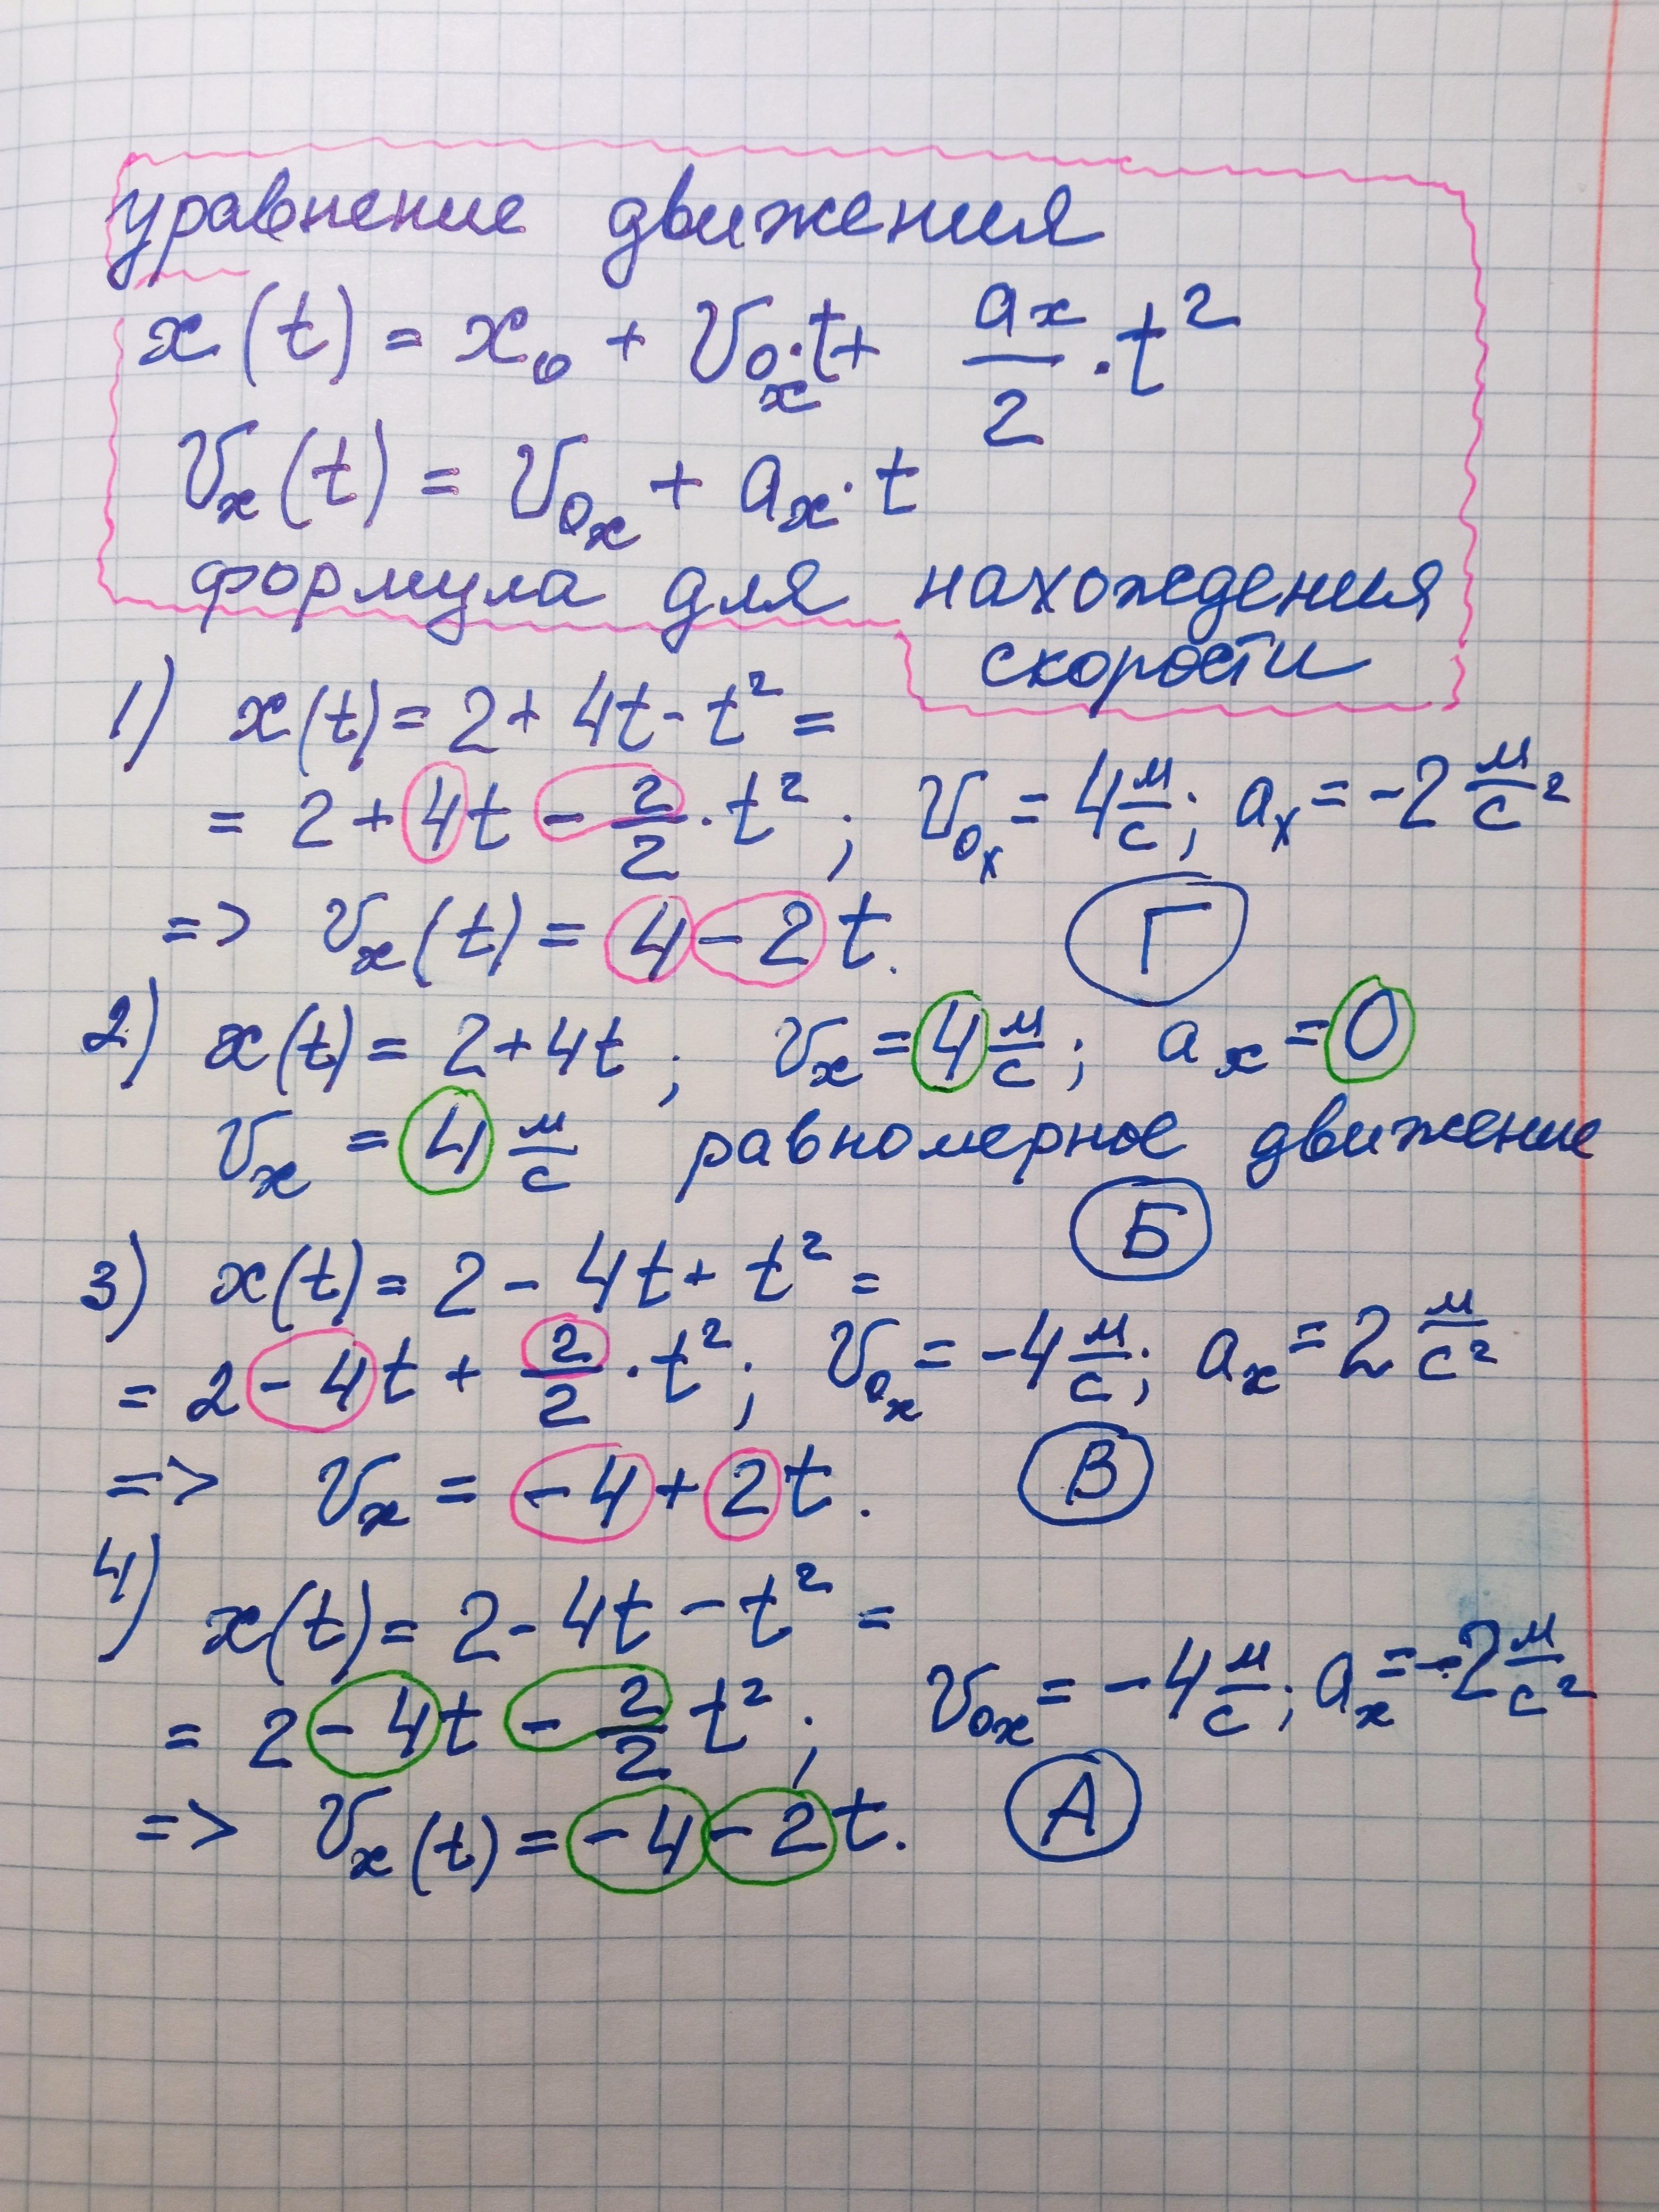 уравнение движения
x(t) = x₀ + V₀ₓ·t + aₓ/2 · t²
Vₓ(t) = V₀ₓ + aₓ · t
формула для нахождения
скорости
1) x(t) = 2 + 4t - t² =
= 2 + 4t - 2/2 · t² ; V₀ₓ = 4 м/с; aₓ = -2 м/с²
=> Vₓ(t) = 4 - 2t. Г
2) x(t) = 2 + 4t ; Vₓ = 4 м/с ; aₓ = 0
Vₓ = 4 м/с равномерное движение
Б
3) x(t) = 2 - 4t + t² =
= 2 - 4t + 2/2 · t² ; V₀ₓ = -4 м/с; aₓ = 2 м/с²
=> Vₓ = -4 + 2t. В
4) x(t) = 2 - 4t - t² =
= 2 - 4t - 2/2 t² ; V₀ₓ = -4 м/с; aₓ = -2 м/с²
=> Vₓ(t) = -4 - 2t. А